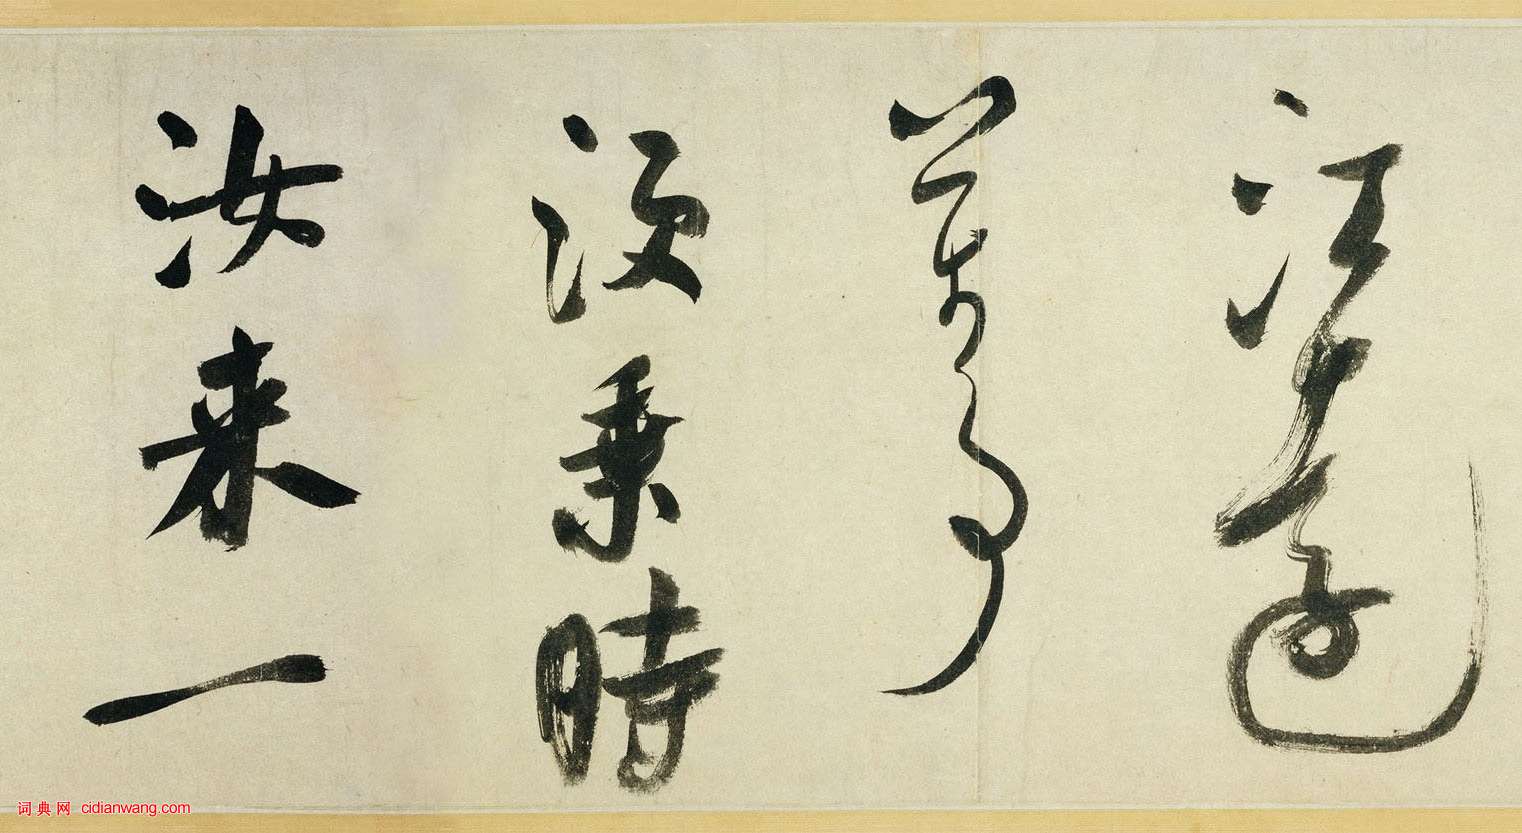 江
万事
须乘時
汝来一
词典网 cidianwang.com